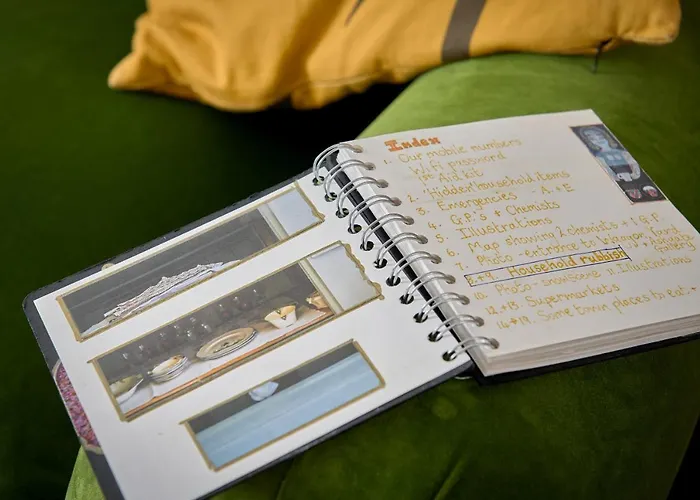 Index
1. Our mobile numbers
Wifi password
1st Aid kit
2. 'Hidden' household items
3. Emergencies - A. + E.
4. G.P.'s & Chemists
5. Illustrations
6. Map showing 2 chemists + G.P.
Photo - entrance to
8.+9. Household rubbish
10. Photo - snowscene 11. Illustrations
12.+13. Supermarkets
14.+19. Some town places to eat.